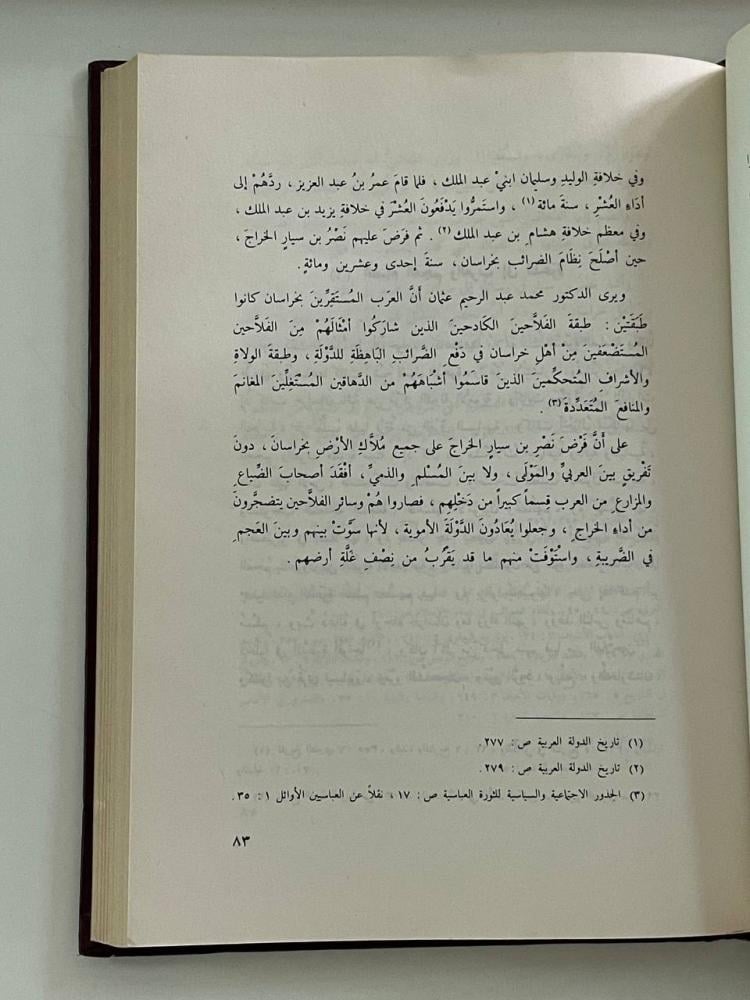 وفي خلافةِ الوليدِ وسليمان ابنيْ عبد الملك ، فلما قامَ عمرُ بنُ عبد العزيز ، ردَّهُمْ إلى
أدَاءِ العُشْرِ ، سنةَ مائة (١) ، واستَمرُّوا يَدْفَعُونَ العُشْرَ في خلافةِ يزيد بن عبد الملك ،
وفي معظم خلافةِ هشام ِ بن عبد الملك (٢) . ثم فرَضَ عليهم نَصْرُ بن سيارٍ الخراجَ ،
حين أصْلَحَ نِظَامَ الضرائب بخراسان ، سنةَ إحدى وعشرين ومائةٍ .
ويرى الدكتور محمد عبد الرحيم عثمان أنَّ العرَب المُستَقِرِّينَ بخراسان كانوا
طَبَقَتَيْن : طبقةَ الفَلاَّحينَ الكَادحينَ الذين شارَكُوا أمْثالَهُمْ مِنَ الفَلاَّحين
المُستَضْعَفينَ مِنْ أهْلِ خراسان في دَفْع ِ الضَّرائبِ البَاهِظَةِ للدَّوْلَةِ ، وطبقةَ الولاةِ
والأشرافِ المُتحكِّمينَ الذينَ قاسَمُوا أشْبَاهَهُمْ من الدهاقين المُسْتَغِلِّينَ المغانمَ
والمنافعَ المُتَعَدِّدةَ (٣) .
على أنَّ فَرْضَ نَصْرِ بن سيارٍ الخراجَ على جميع مُلاَّكِ الأرْضِ بخراسانَ ، دونَ
تَفْريقٍ بينَ العربيِّ والمَوْلَى ، ولا بينَ المُسْلم ِ والذميِّ ، أفْقَدَ أصحابَ الضِّياع ِ
والمزارع ِ من العرب قِسماً كبيراً من دَخْلِهِم ، فصاروا هُمْ وسائر الفلاَّحين يتضجَّرونَ
من أداءِ الخراج ِ ، وجعلوا يُعَادُونَ الدَّوْلَةَ الأموية ، لأنها سَوَّتْ بينهم وبينَ العَجم ِ
في الضَّريبةِ ، واستُوْفَتْ منهم ما قد يَقْرُبُ من نِصْفِ غَلَّةِ أرضهم .
(١) تاريخ الدولة العربية ص : ٢٧٧ .
(٢) تاريخ الدولة العربية ص : ٢٧٩ .
(٣) الجذور الاجتماعية والسياسية للثورة العباسية ص : ١٧ ، نقلاً عن العباسيين الأوائل ١ : ٣٥ .
٨٣